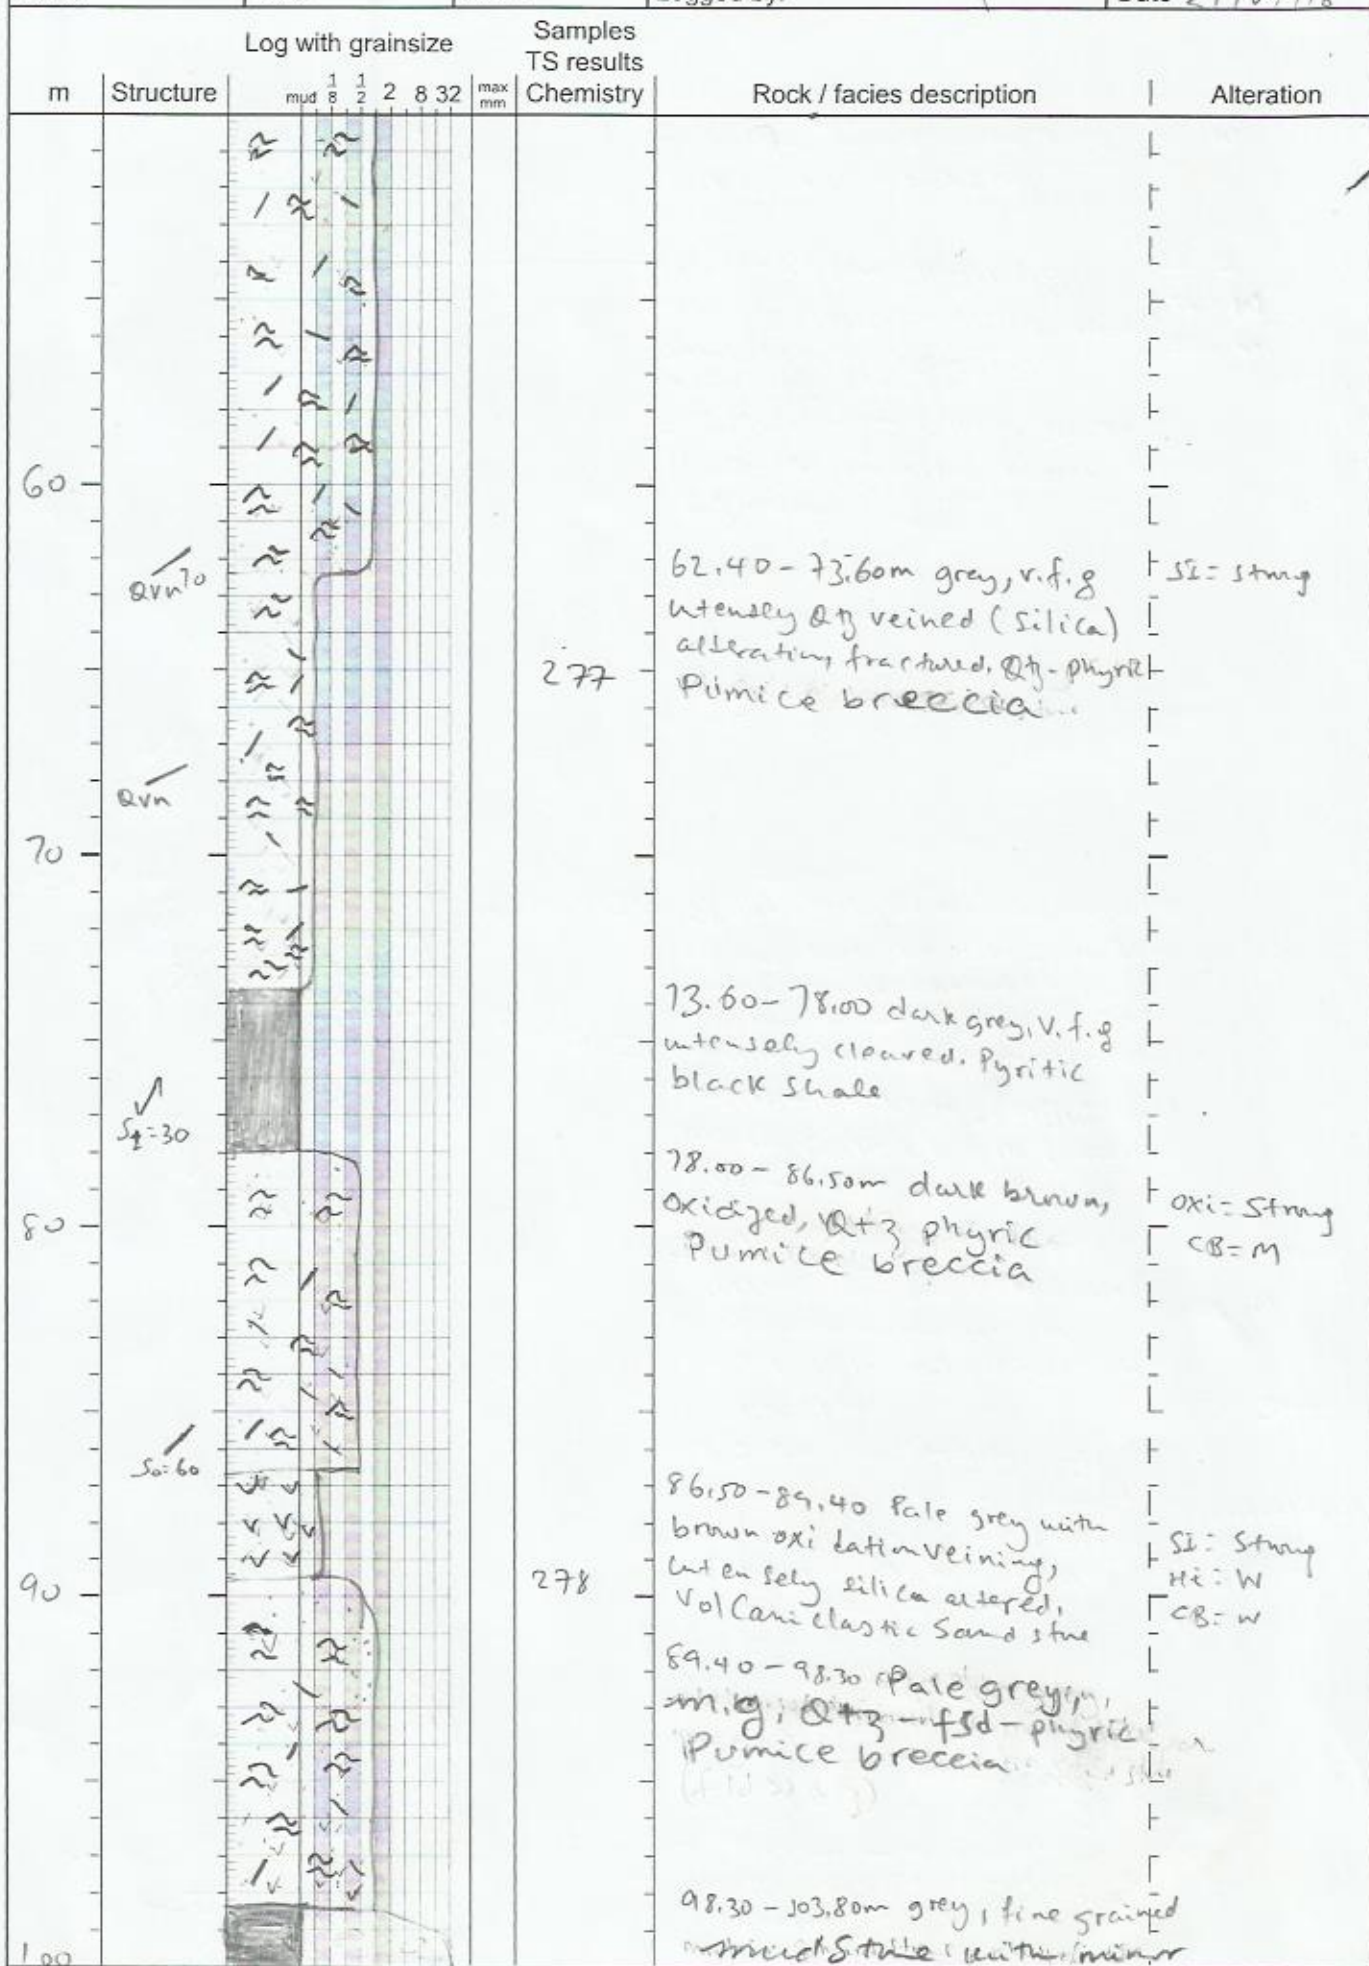 Logged by:
Log with grainsize
Samples
TS results
m Structure mud 1/8 1/2 2 8 32 max mm Chemistry Rock / facies description Alteration
60
Qvn 70
62.40 - 73.60m grey, v.f.g
intensely Qtz veined (Silica)
alteration, fractured, Qtz-phyric
Pumice breccia
SI= strong
277
Qvn
70
73.60 - 78.00 dark grey, V.f.g
intensely cleaved. Pyritic
black shale
S1=30
78.00 - 86.50m dark brown,
oxidized, Qtz phyric
Pumice breccia
Oxi= Strong
CB= M
80
So=60
86.50 - 89.40 Pale grey with
brown oxi dation veining,
intensely silica altered,
Volcaniclastic Sand stne
SI: Strong
Hi: W
CB= W
90
278
89.40 - 98.30 Pale grey,
m.g, Qtz - fsd - phyric
Pumice breccia
98.30 - 103.80m grey, fine grained
mudstne with minor
100